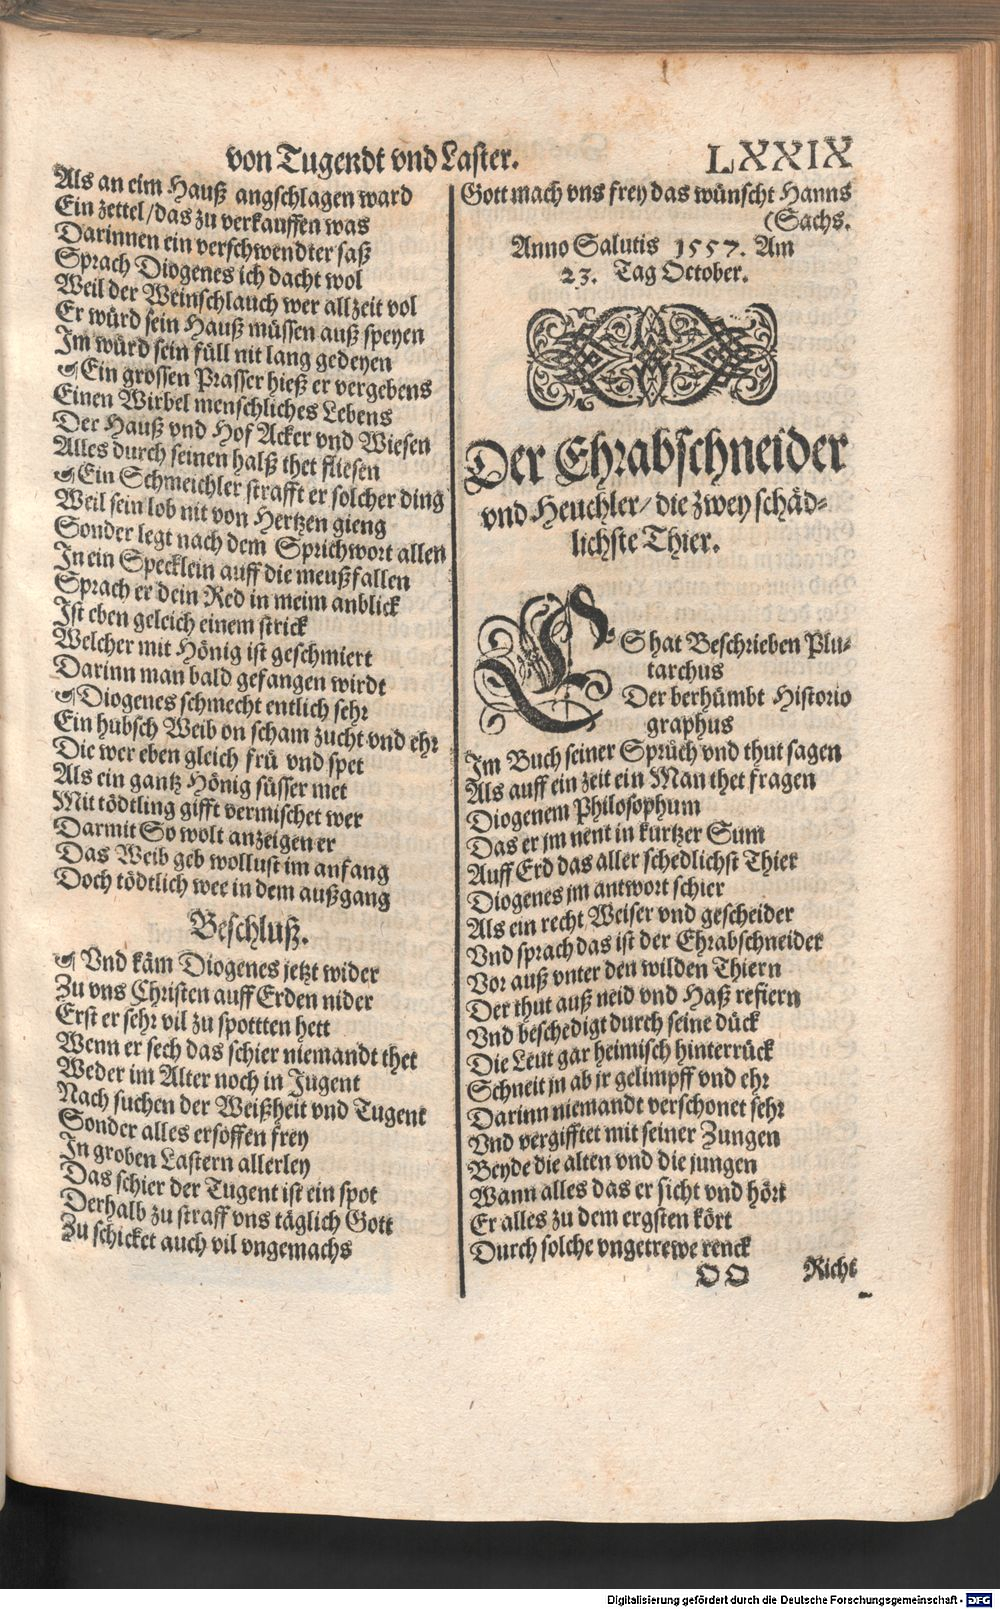 von Tugendt vnd Laster.
LXXIX
Als an eim Hauß angschlagen ward
Ein zettel/das zu verkauffen was
Darinnen ein verschwendter saß
Sprach Diogenes ich dacht wol
Weil der Weinschlauch wer allzeit vol
Er würd sein Hauß müssen auß speyen
Im würd sein füll nit lang gedeyen
Ein grossen Prasser hieß er vergebens
Einen Wirbel menschliches Lebens
Der Hauß vnd Hof Acker vnd Wiesen
Alles durch seinen halß thet fliesen
Ein Schmeichler strafft er solcher ding
Weil sein lob nit von Hertzen gieng
Sonder legt nach dem Sprichwort allen
In ein Specklein auff die meußfallen
Sprach er dein Red in meim anblick
Ist eben geleich einem strick
Welcher mit Hönig ist geschmiert
Darinn man bald gefangen wirdt
Diogenes schmecht entlich sehr
Ein hubsch Weib on scham zucht vnd ehr
Die wer eben gleich frü vnd spet
Als ein gantz Hönig süsser met
Mit tödtling gifft vermischet wer
Darmit So wolt anzeigen er
Das Weib geb wollust im anfang
Doch tödtlich wee in dem außgang
Beschluß.
Vnd käm Diogenes jetzt wider
Zu vns Christen auff Erden nider
Erst er sehr vil zu spottten hett
Wenn er sech das schier niemandt thet
Weder im Alter noch in Jugent
Nach suchen der Weißheit vnd Tugent
Sonder alles ersoffen frey
In groben Lastern allerley
Das schier der Tugent ist ein spot
Derhalb zu straff vns täglich Gott
Zu schicket auch vil vngemachs
Gott mach vns frey das wünscht Hanns
(Sachs.
Anno Salutis 1557. Am
23. Tag October.
Der Ehrabschneider
vnd Heuchler/ die zwey schäd=
lichste Thier.
ES hat Beschrieben Plu=
tarchus
Der berhümbt Historio
graphus
Im Buch seiner Sprüch vnd thut sagen
Als auff ein zeit ein Man thet fragen
Diogenem Philosophum
Das er jm nent in kurtzer Sum
Auff Erd das aller schedlichst Thier
Diogenes jm antwort schier
Als ein recht Weiser vnd gescheider
Vnd sprach das ist der Ehrabschneider
Vor auß vnter den wilden Thiern
Der thut auß neid vnd Haß refiern
Vnd beschedigt durch seine dück
Die Leut gar heimisch hinterrück
Schneit jn ab jr gelimpff vnd ehr
Darinn niemandt verschonet sehr
Vnd vergifftet mit seiner Zungen
Beyde die alten vnd die jungen
Wann alles das er sicht vnd hört
Er alles zu dem ergsten kört
Durch solche vngetrewe renck
OO
Richt
Digitalisierung gefördert durch die Deutsche Forschungsgemeinschaft - DFG